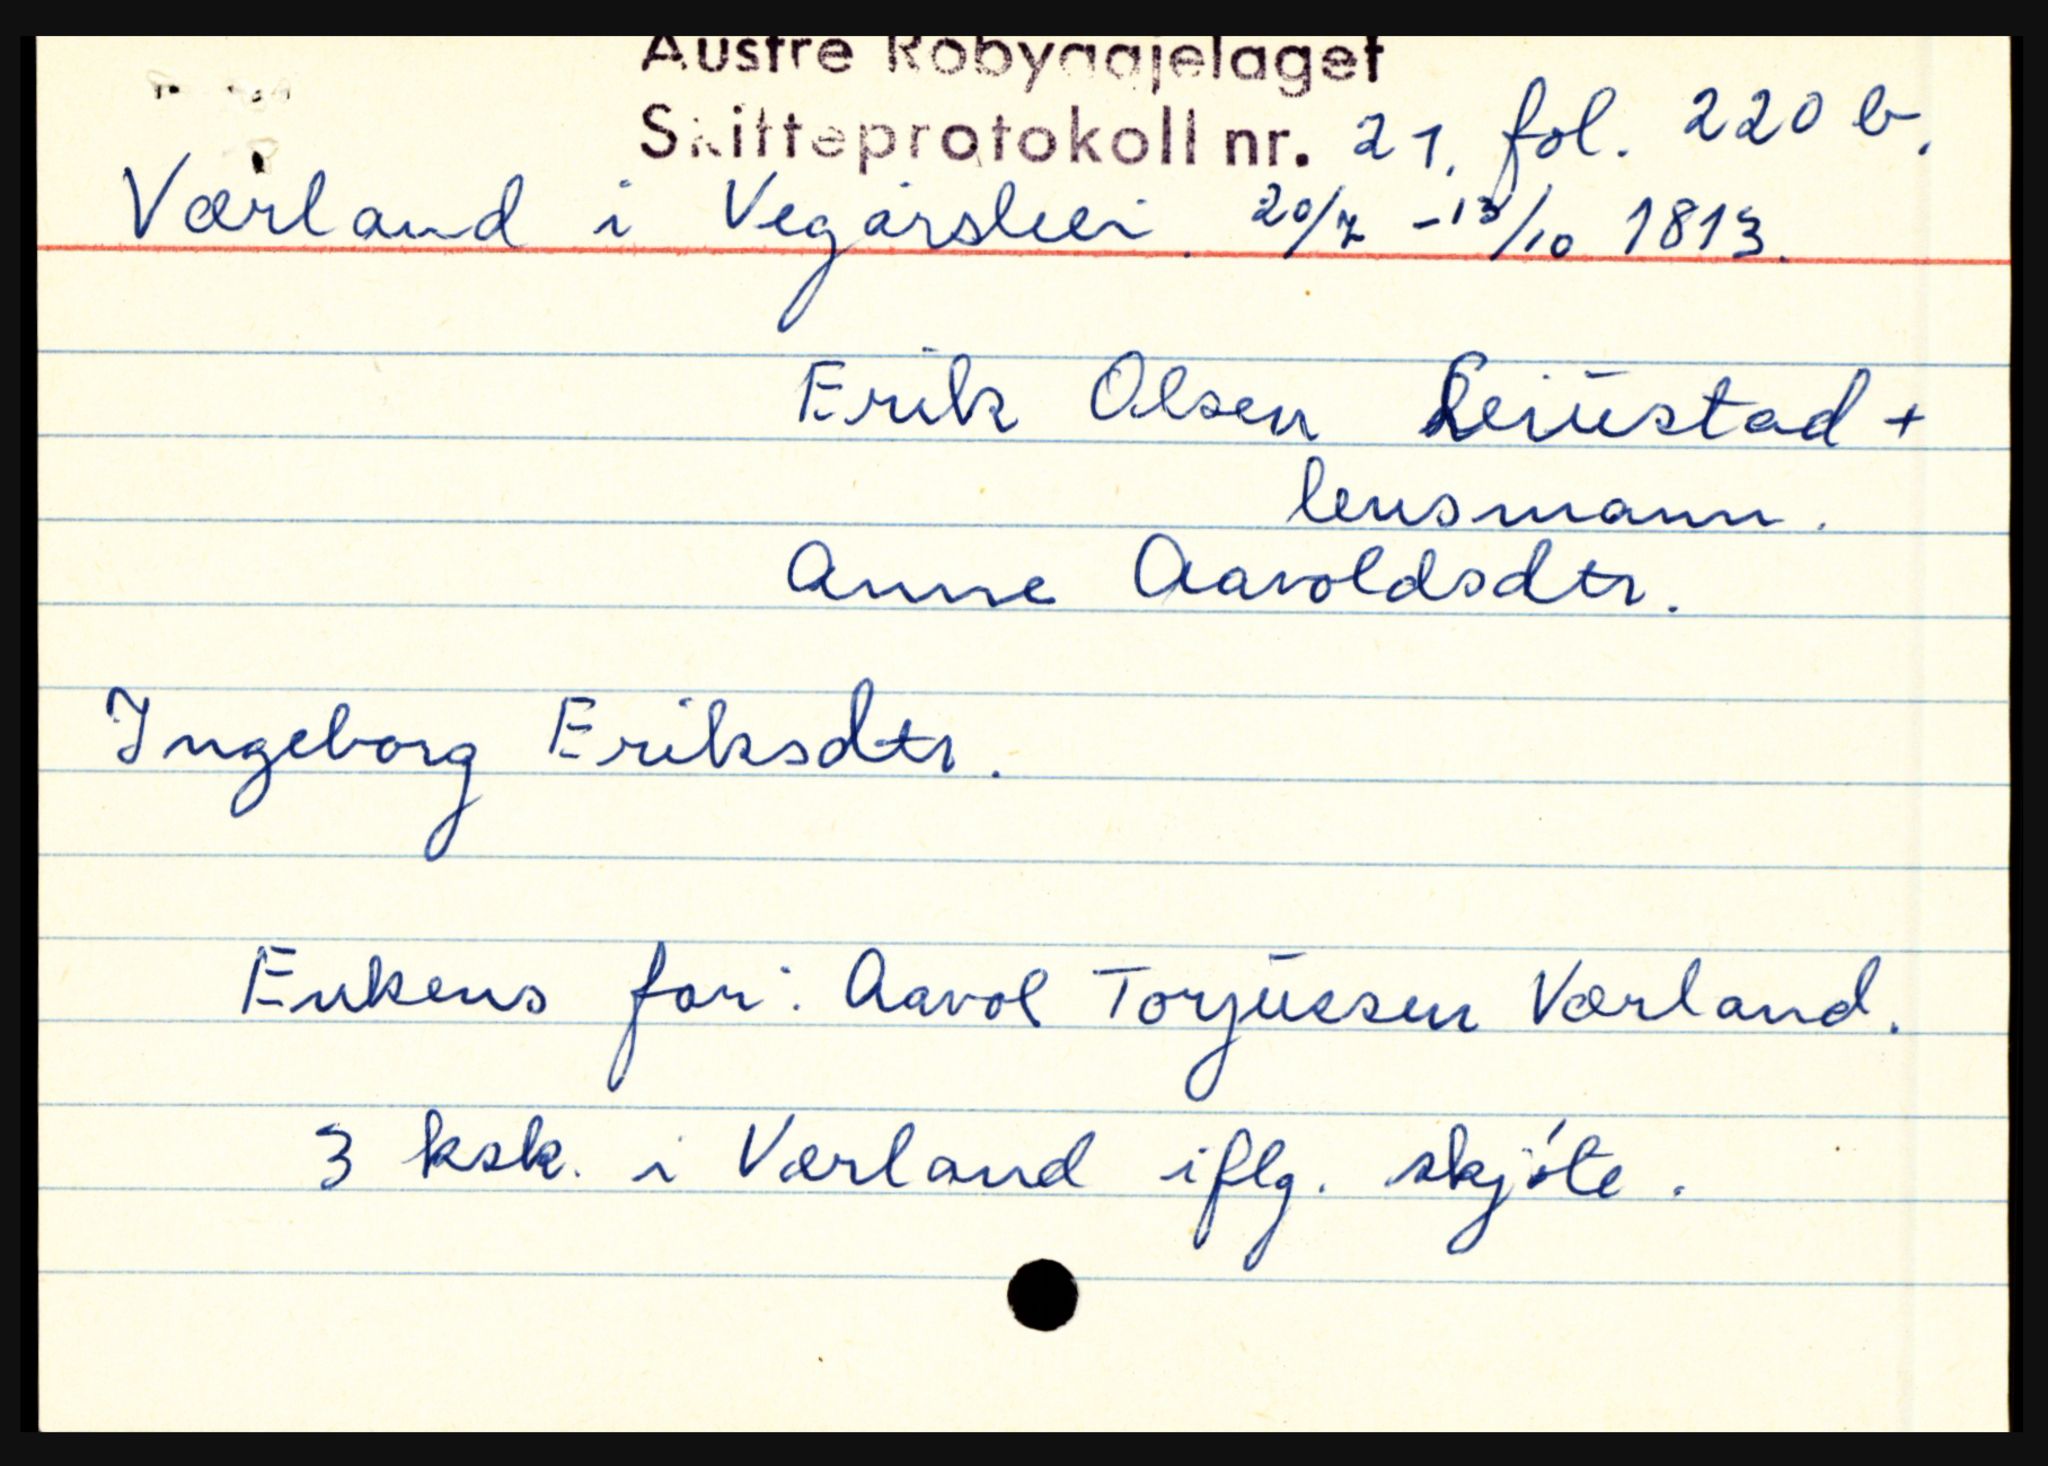 Austre Robyggjelaget
Skifteprotokoll nr. 21. fol. 220 b.
Værland i Vegårshei. 20/7 - 13/10 1813.
Erik Olsen Leiustad +
lensmann.
Anne Aavoldsdtr.
Ingeborg Eriksdtr.
Enkens far: Aavol Torjussen Værland.
3 ksk. i Værland iflg. skjöte.